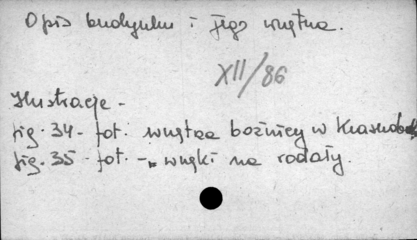 Opis budynku i jego wnętrza.
XII/86
Ilustracje -
fig. 34 - fot. wnętrza bożnicy w
fig. 35 - fot. - „ wnęki na rodały.